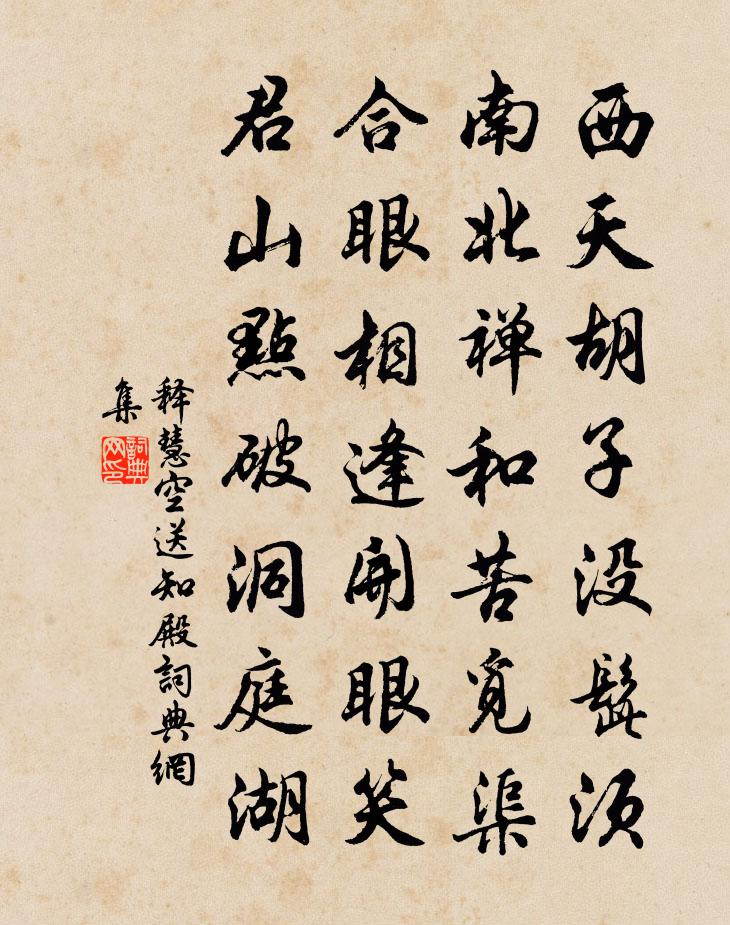 西天胡子没髭须
南北禅和苦觅渠
合眼相逢開眼笑
君山點破洞庭湖
释慧空送知殿詞典網
集
詞典
网印